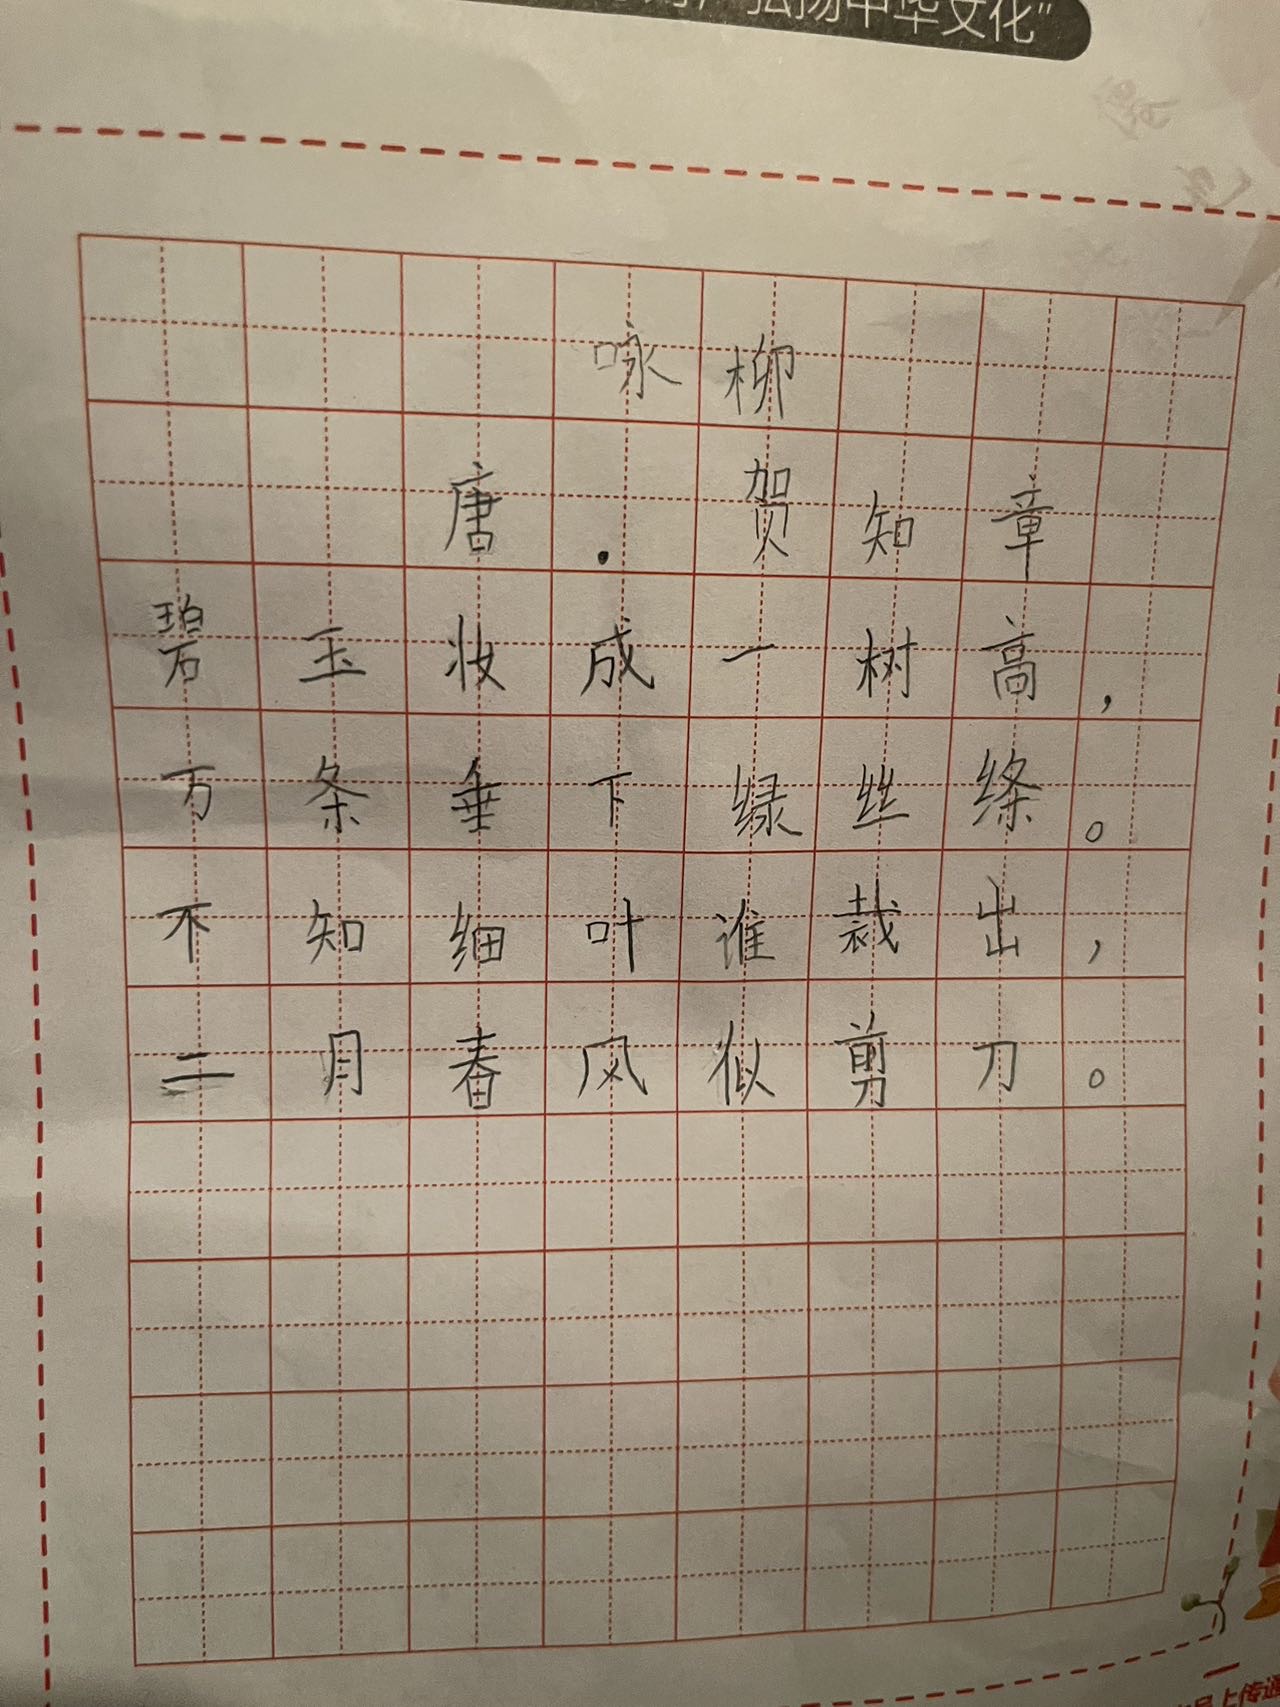 弘扬中华文化"
咏柳
唐.贺知章
碧玉妆成一树高,
万条垂下绿丝绦。
不知细叶谁裁出,
二月春风似剪刀。